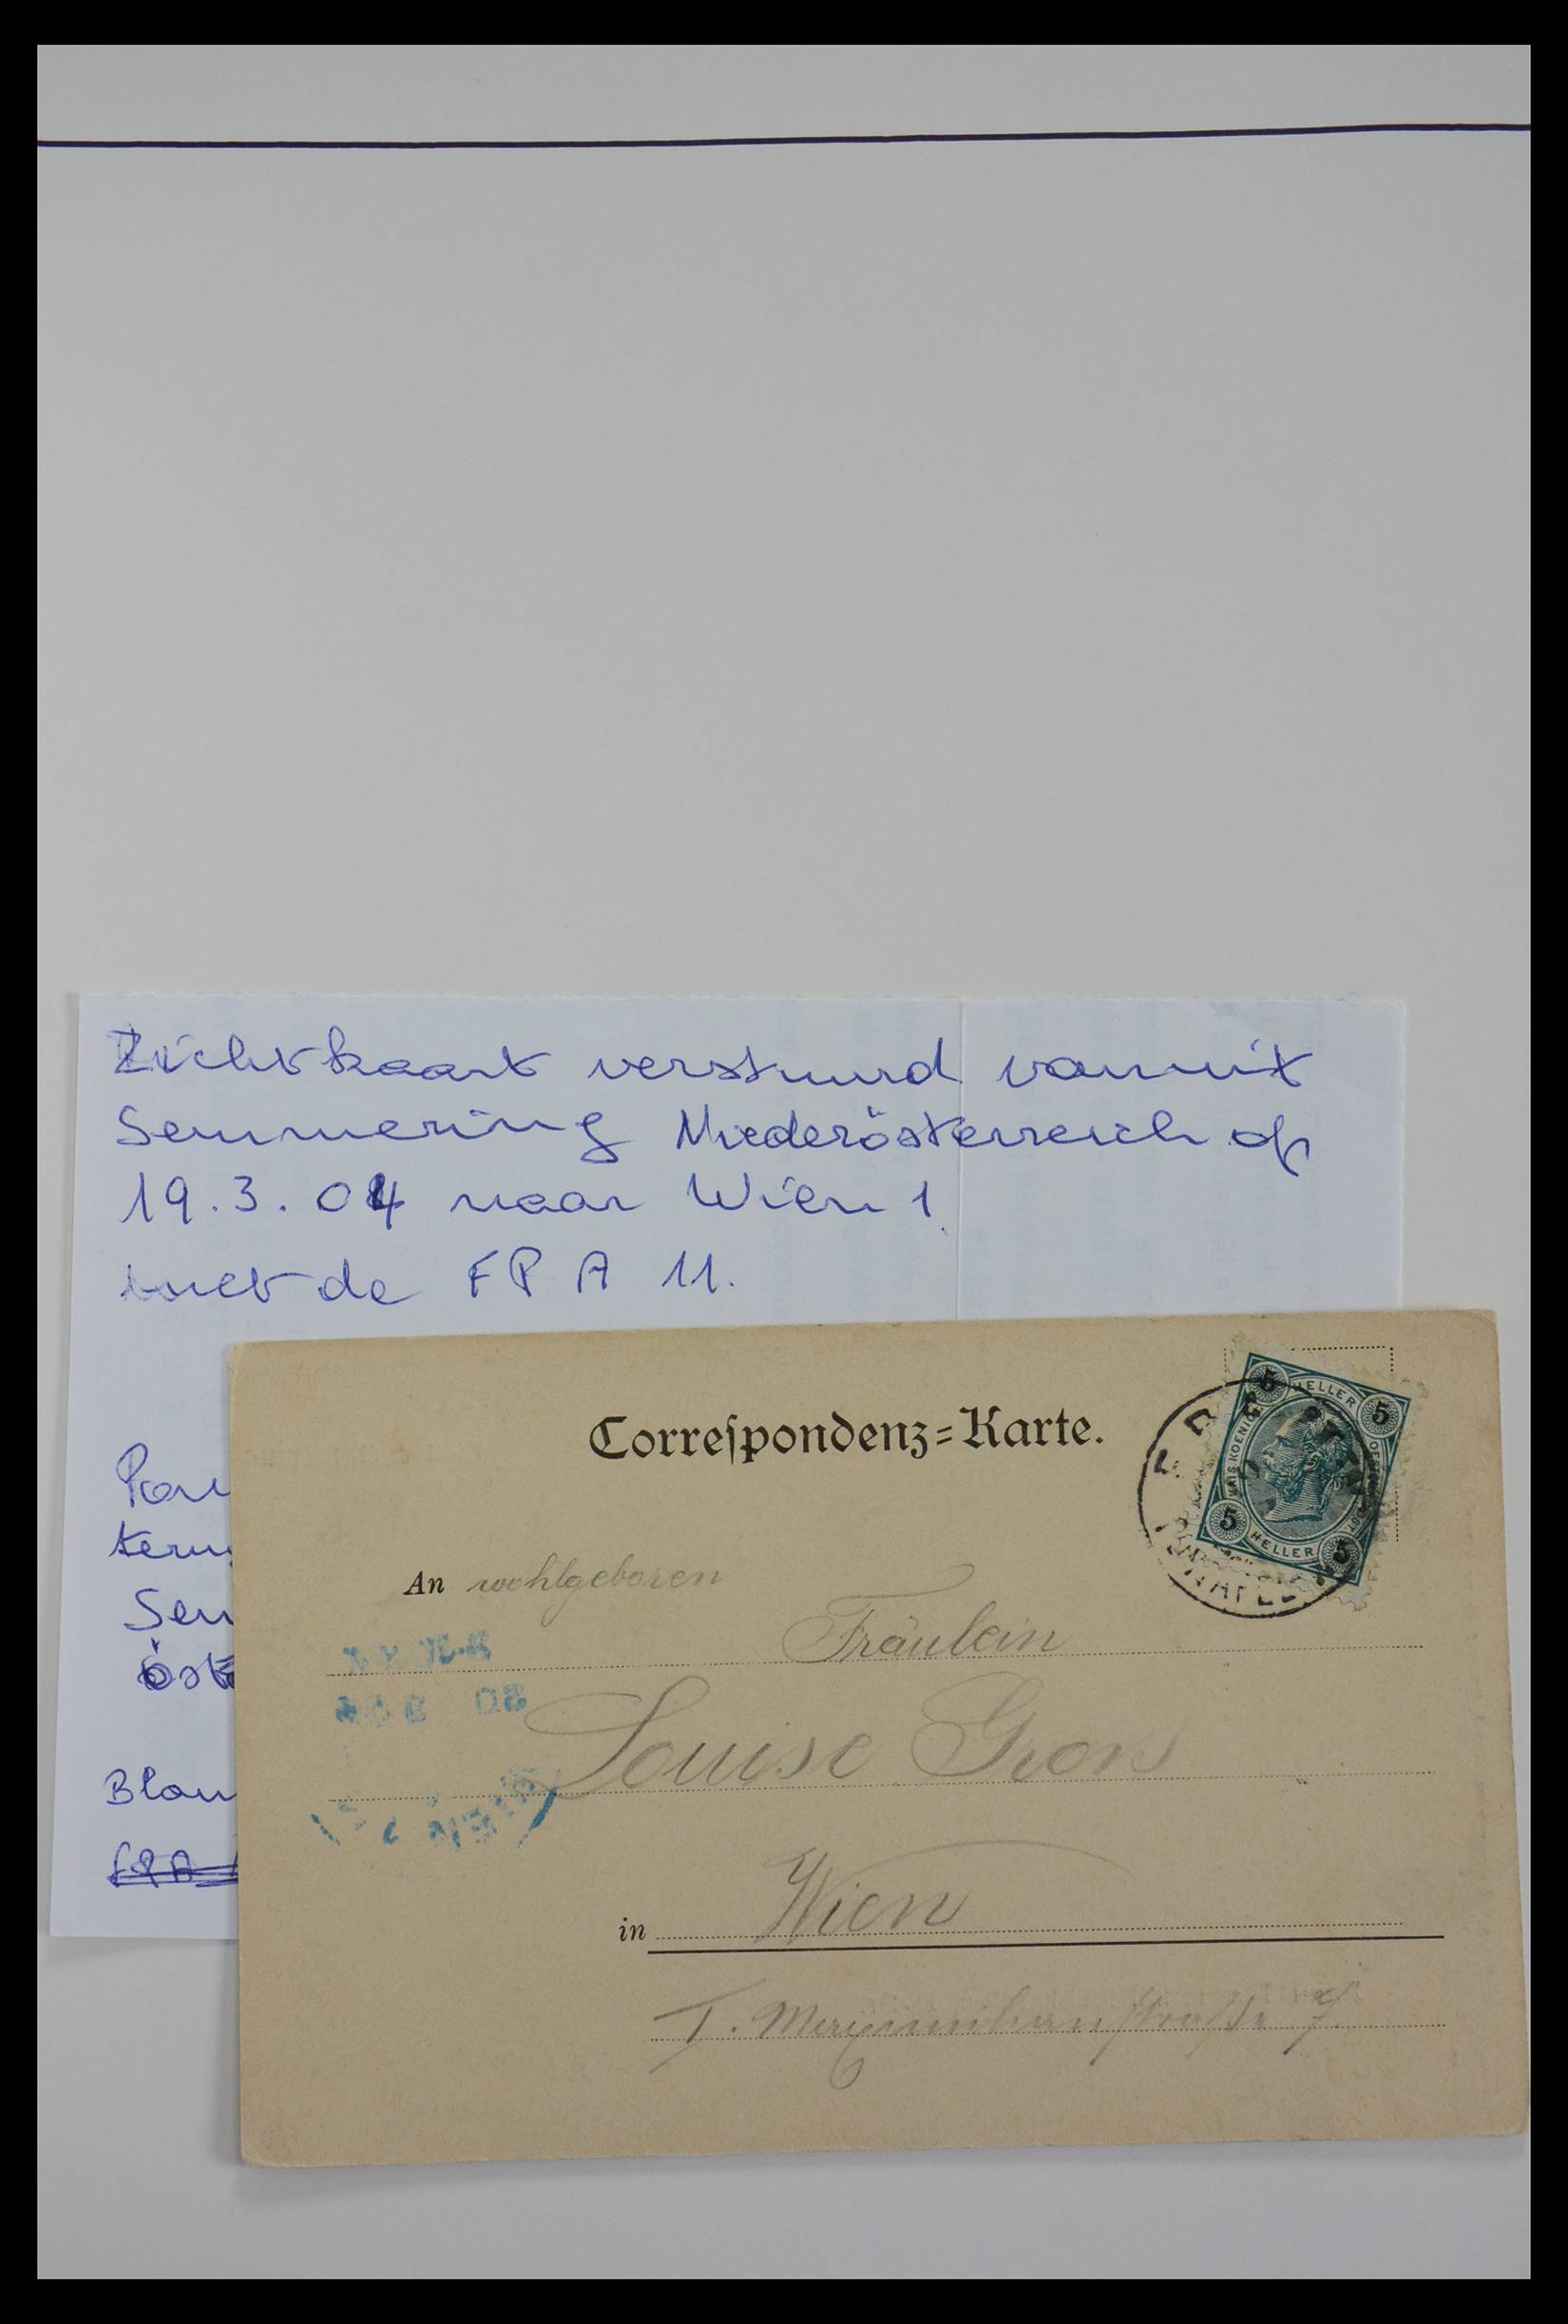 Zichtkaart verstuurd vanuit
Semmering Niederösterreich op
19.3.04 naar Wien 1
met de FP A 11.
Sem
öste
Blau
FPA
Correspondenz-Karte.
5 HELLER 5
5 HELLER 5
An wohlgeboren
Fräulein
Louise Grons
in Wien
I. Maximilianstraße 7.